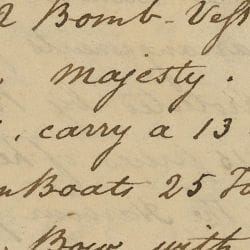 2 Bomb-Vess
Majesty.
carry a 13
Boats 25
Bow with